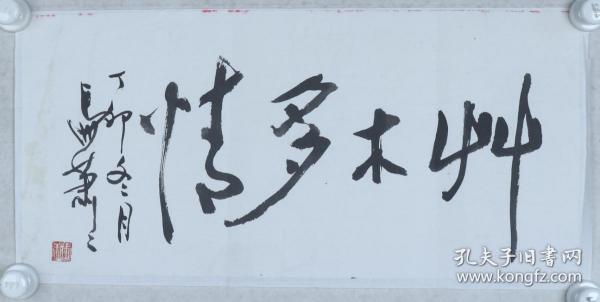 艸木多情
丁卯冬月
孔夫子旧书网
www.kongfz.com